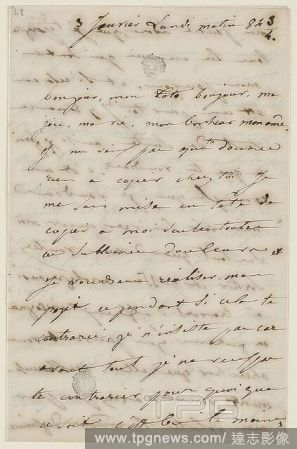 48
3 Janvier Lundi matin 843
4.
bonjour, mon Toto, bonjour, ma
joie, ma vie, mon bonheur mon âme.
Je ne veux pas que tu donnes
rien à copier chez toi. Je
me suis mise en tête de
copier à moi seule toutes
ces sublimes douleurs et
je voudrais réaliser mon
projet cependant si cela te
contrarie je n'insiste pas car
avant tout je ne veux pas
te contrarier pour quoi que
ce soit. c'est bien le moins
TPG
www.tpgnews.com/達志影像